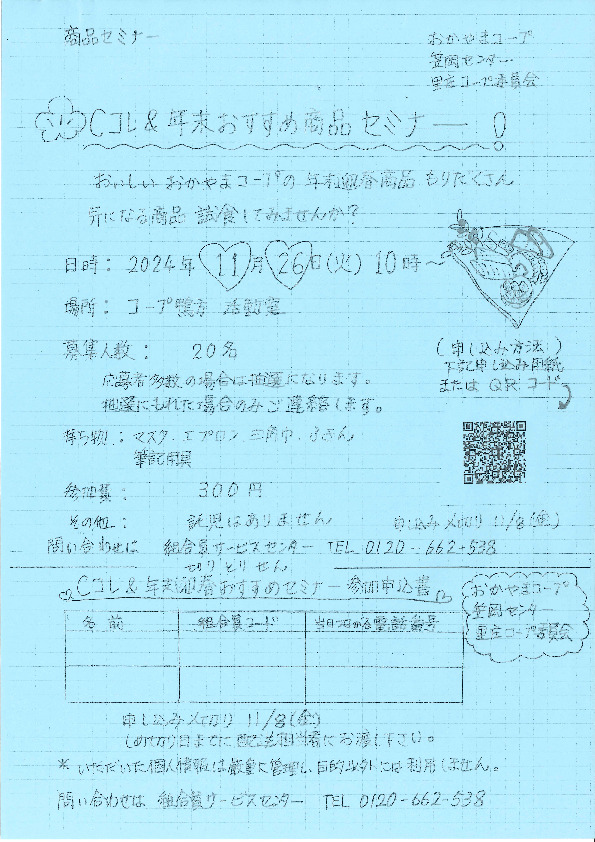 商品セミナー
おかやまコープ
笠岡センター
里庄コープ委員会
Cコレ&年末おすすめ商品セミナー!
おいしいおかやまコープの年末迎春商品もりだくさん
気になる商品 試食してみませんか?
日時: 2024年 11月26日(火) 10時~
場所: コープ鴨方 活動室
募集人数: 20名
応募者多数の場合は抽選になります。
抽選にもれた場合のみご連絡します。
(申し込み方法)
下記申し込み用紙
または QRコード
持ち物: マスク.エプロン.三角巾.ふきん
筆記用具
参加費: 300円
その他: 託児はありません
申し込み〆切り 11/8(金)
問い合わせは 組合員サービスセンター TEL 0120-662-538
切りとりせん
Cコレ&年末迎春おすすめセミナー参加申込書
おかやまコープ
笠岡センター
里庄コープ委員会
名前 組合員コード 当日つながる電話番号
申し込み〆切り 11/8(金)
しめ切り日までに配送担当者にお渡し下さい。
*いただいた個人情報は厳重に管理し、目的以外には利用しません。
問い合わせは 組合員サービスセンター TEL 0120-662-538